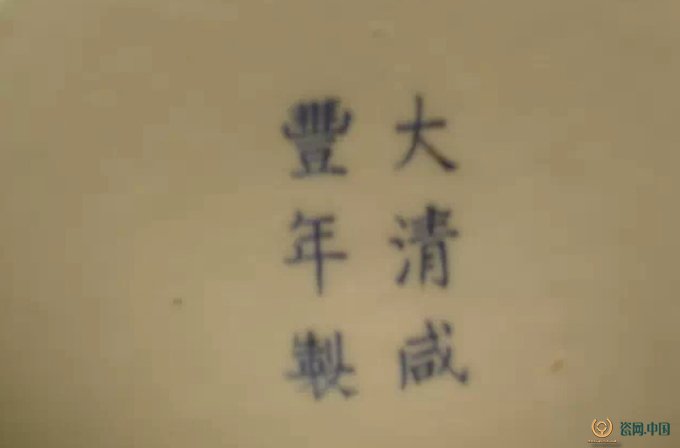 大清咸
豐年製
瓷网.中国